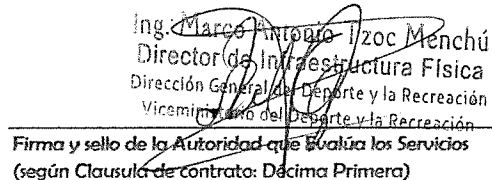 Ing. Marco Antonio Tzoc Menchú
Director de Infraestructura Física
Dirección General del Deporte y la Recreación
Viceministerio del Deporte y la Recreación
Firma y sello de la Autoridad que Evalúa los Servicios
(según Clausula de contrato: Décima Primera)